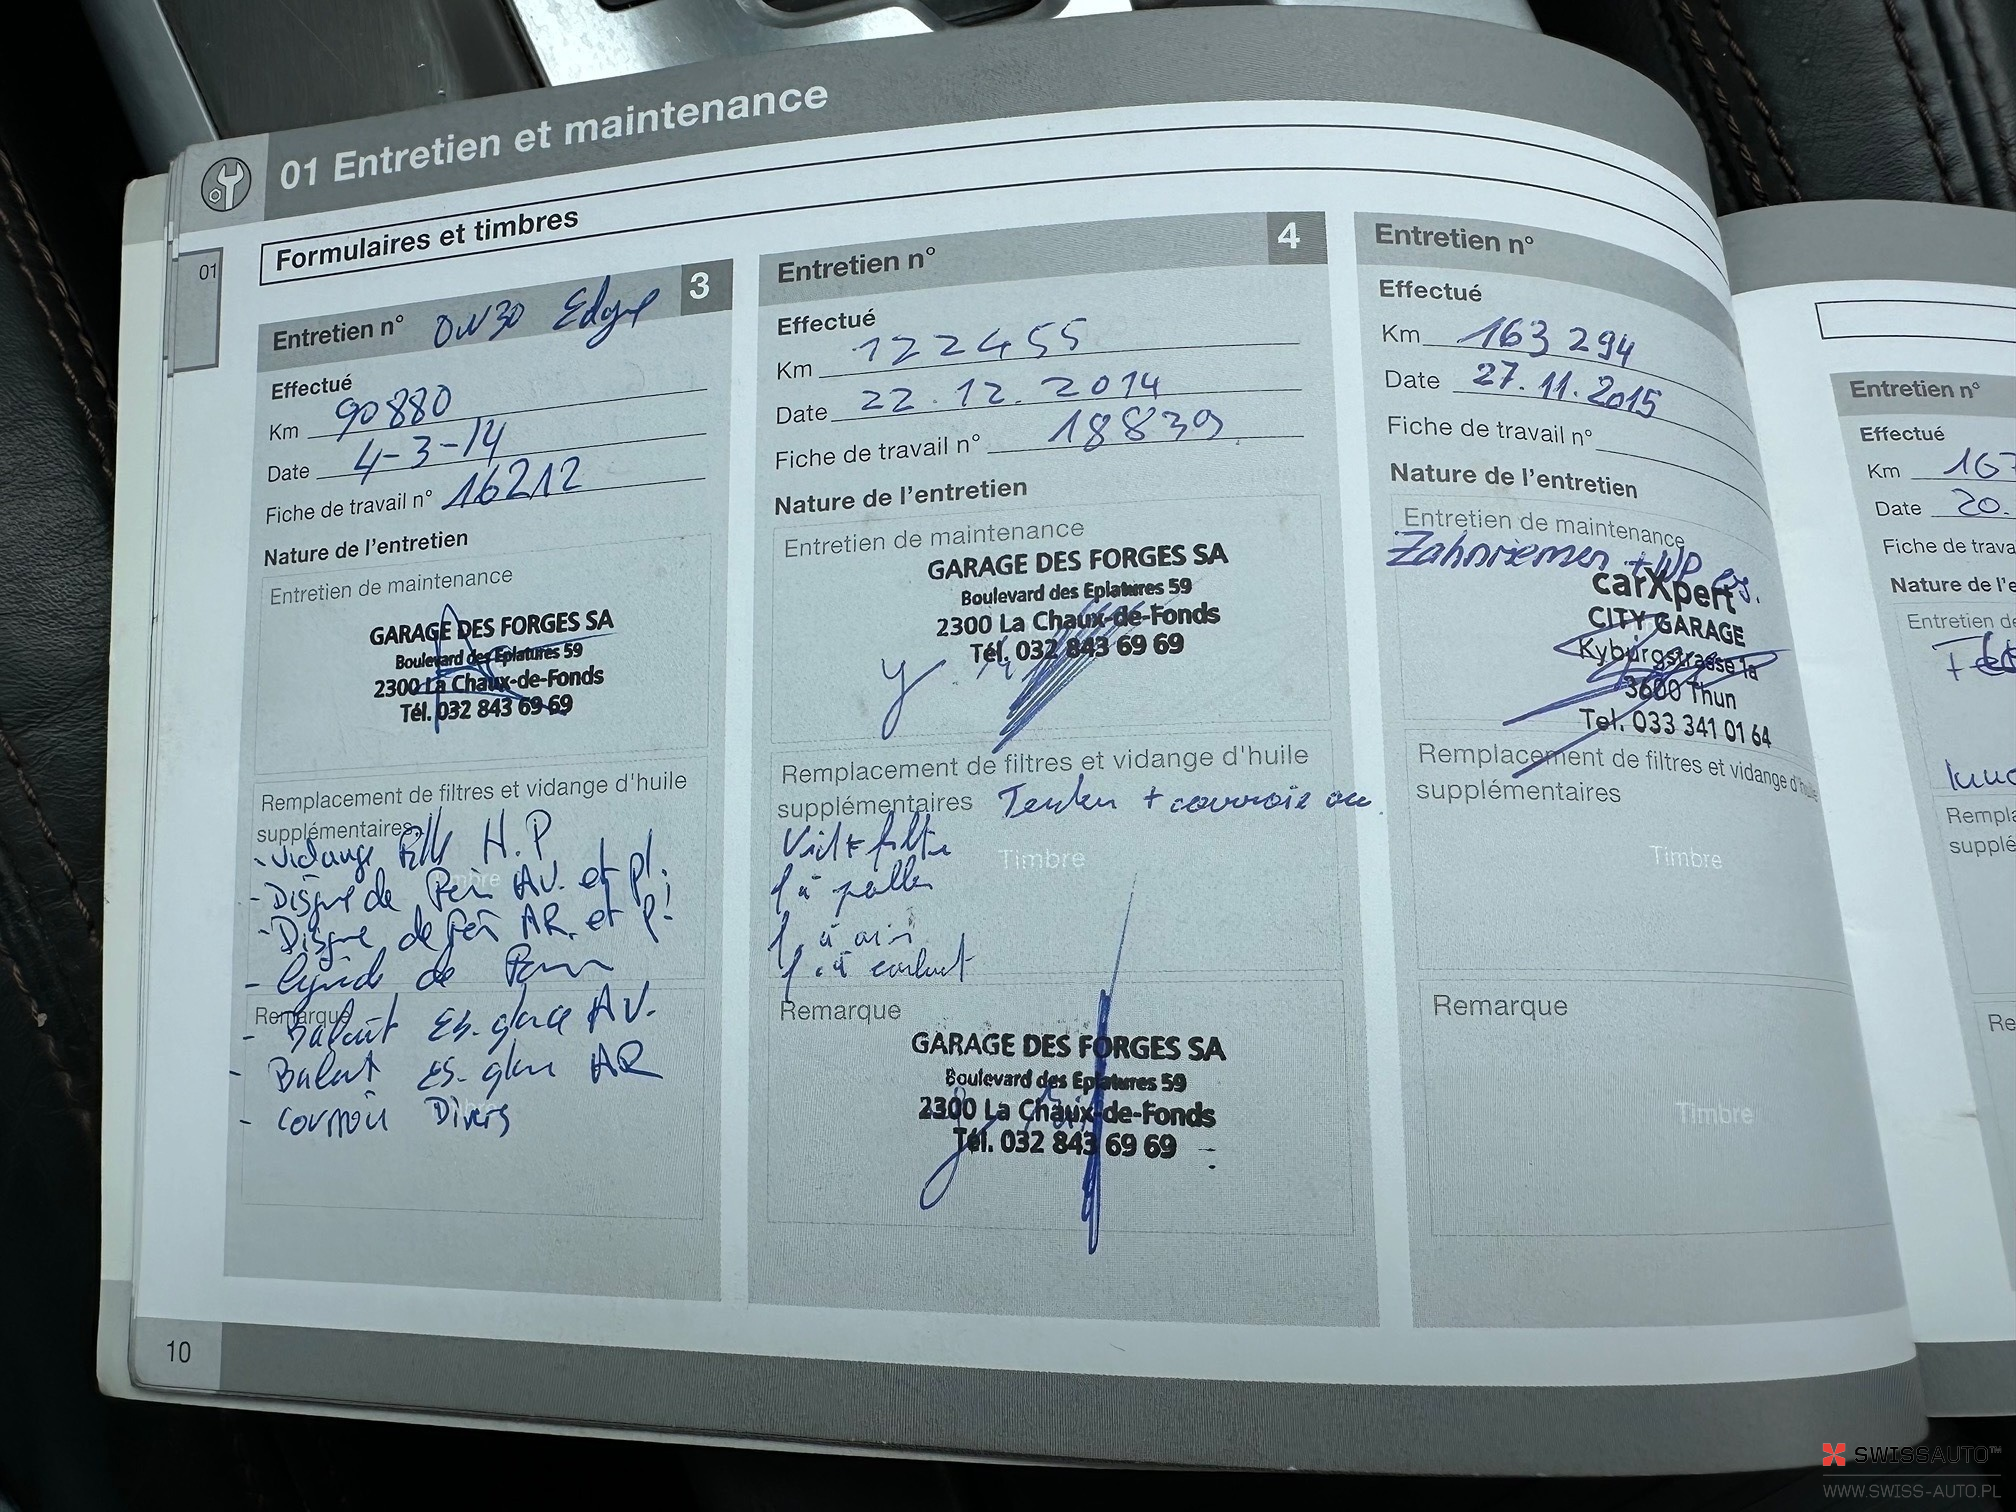 01 Entretien et maintenance
01
Formulaires et timbres
Entretien n° 0W30 Edge 3
Effectué
Km 90880
Date 4-3-14
Fiche de travail n° 16212
Nature de l'entretien
Entretien de maintenance
GARAGE DES FORGES SA
Boulevard des Eplatures 59
2300 La Chaux-de-Fonds
Tél. 032 843 69 69
Remplacement de filtres et vidange d'huile
supplémentaires
- Vidange H.P
- Disque de AV. et pl.
- Disque de AR. et p!
- de
Remarque
- Es. glace AV.
- Balait ES. glace AR
- Divers
Entretien n° 4
Effectué
Km 122455
Date 22.12.2014
Fiche de travail n° 18839
Nature de l'entretien
Entretien de maintenance
GARAGE DES FORGES SA
Boulevard des Eplatures 59
2300 La Chaux-de-Fonds
Tél. 032 843 69 69
Remplacement de filtres et vidange d'huile
supplémentaires + courroie
Vid + filtre
Timbre
f à pollen
f à air
f à
Remarque
GARAGE DES FORGES SA
Boulevard des Eplatures 59
2300 La Chaux-de-Fonds
Tél. 032 843 69 69
Entretien n°
Effectué
Km 163 294
Date 27.11.2015
Fiche de travail n°
Nature de l'entretien
Entretien de maintenance
Zahnriemen + WP
carXpert
CITY GARAGE
Kyburgstrasse 1a
3600 Thun
Tel. 033 341 01 64
Remplacement de filtres et vidange d'huile
supplémentaires
Timbre
Remarque
Timbre
Entretien n°
Effectué
Km 167
Date 20.
Fiche de trava
Nature de l'e
Entretien de
Rempla
supplé
Re
10
SWISSAUTO™
WWW.SWISS-AUTO.PL